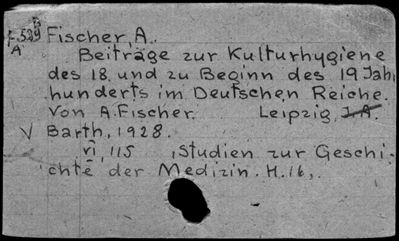 f.529
A
Fischer, A.
Beiträge zur Kulturhygiene
des 18. und zu Beginn des 19 Jahr
hunderts im Deutschen Reiche.
Von A. Fischer. Leipzig, J. A.
V Barth, 1928.
VI, 115 , Studien zur Geschi-
chte der Medizin. H. 16,.